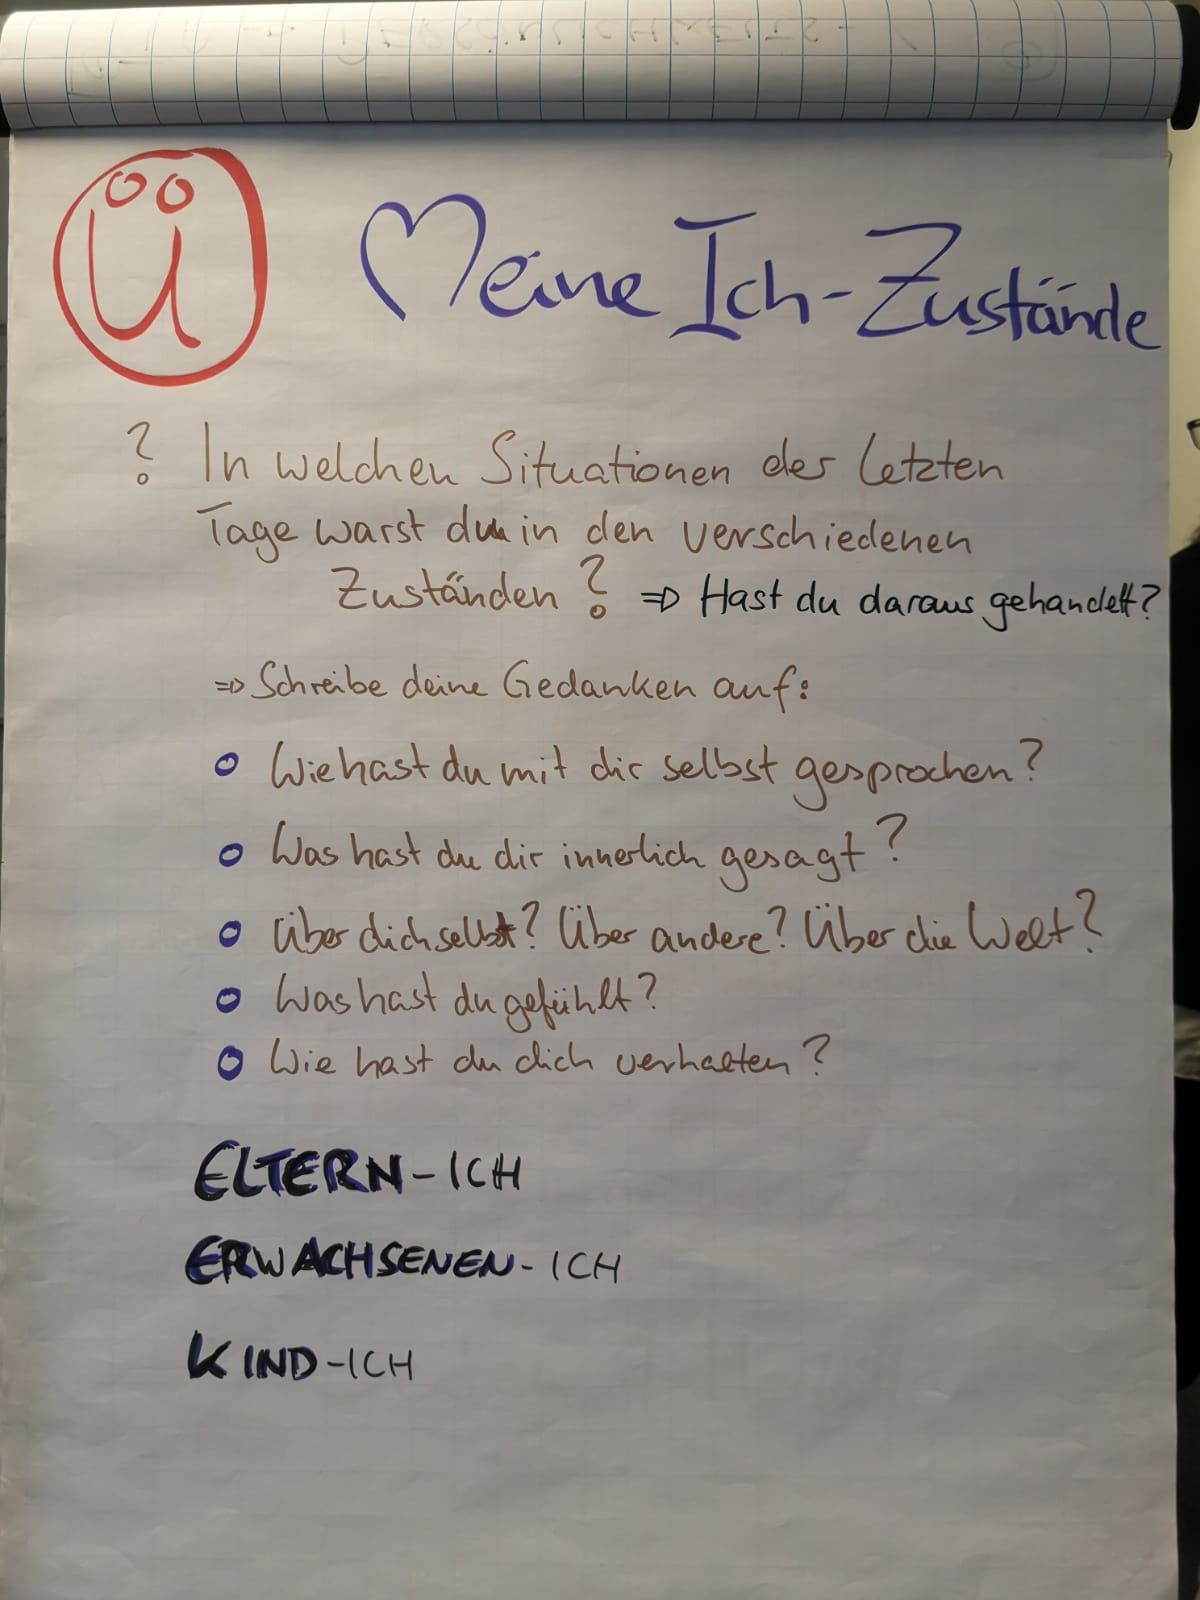 Ü
Meine Ich-Zustände
? In welchen Situationen der letzten
Tage warst du in den verschiedenen
Zuständen? ⇒ Hast du daraus gehandelt?
⇒ Schreibe deine Gedanken auf:
Wie hast du mit dir selbst gesprochen?
Was hast du dir innerlich gesagt?
Über dich selbst? Über andere? Über die Welt?
Was hast du gefühlt?
Wie hast du dich verhalten?
ELTERN-ICH
ERWACHSENEN-ICH
KIND-ICH